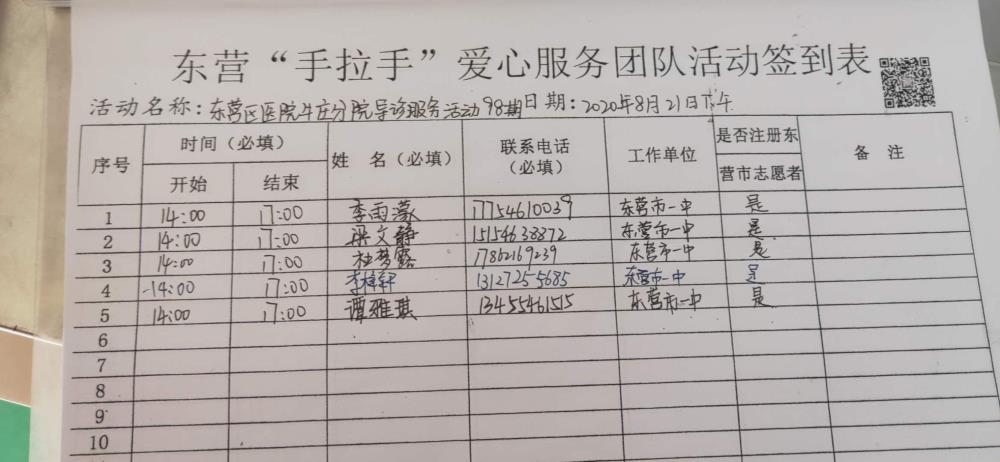 东营“手拉手”爱心服务团队活动签到表
活动名称：东营区医院牛庄分院导诊服务活动98期 日期：2020年8月21日下午
序号 时间（必填） 姓 名（必填） 联系电话（必填） 工作单位 是否注册东营市志愿者 备 注
开始 结束
1 14:00 17:00 李雨濛 17754610039 东营市一中 是
2 14:00 17:00 梁文静 15154638872 东营市一中 是
3 14:00 17:00 杜梦露 17862169239 东营市一中 是
4 14:00 17:00 李梓轩 13127255685 东营市一中 是
5 14:00 17:00 谭雅琪 13455461515 东营市一中 是
6
7
8
9
10